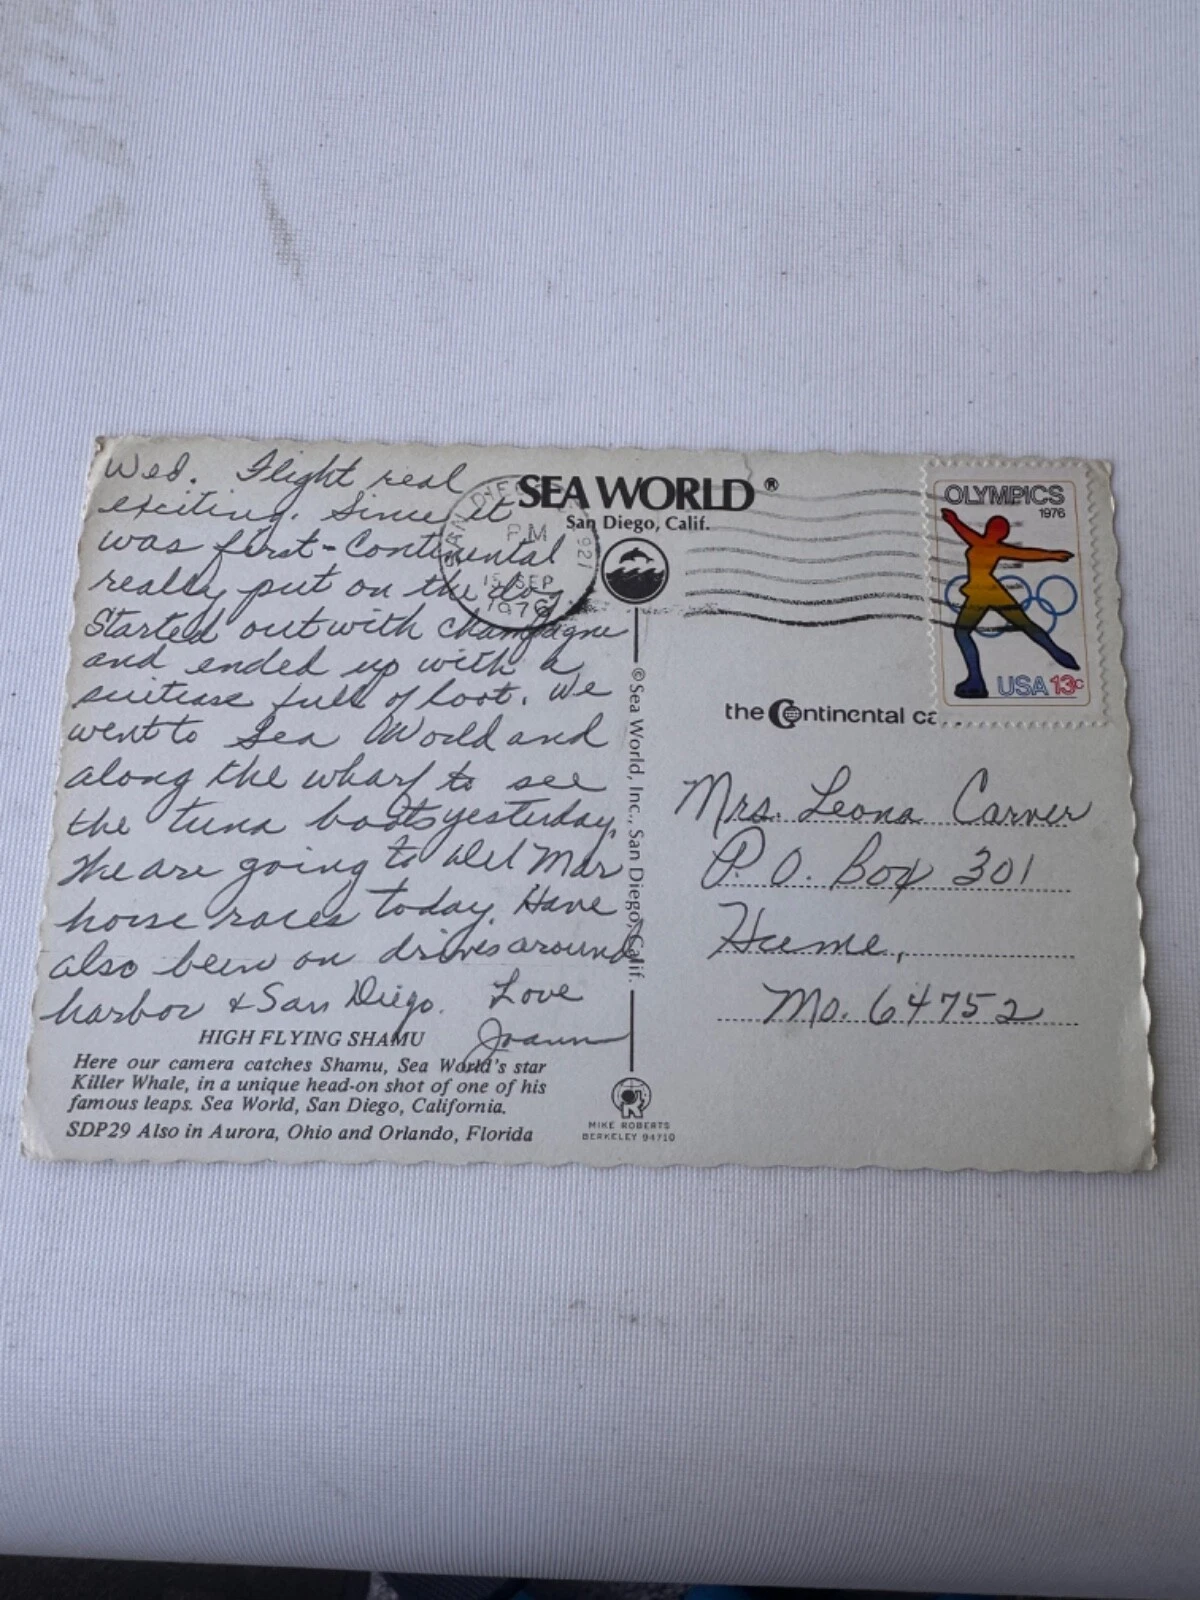 Wed. Flight real
exciting. Since it
was first-Continental
really put on the dog
Started out with champagne
and ended up with a
suitcase full of loot. We
went to Sea World and
along the wharf to see
the tuna boats yesterday.
We are going to Del Mar
horse races today. Have
also been on drives around
harbor & San Diego. Love
Joann
HIGH FLYING SHAMU
Here our camera catches Shamu, Sea World's star
Killer Whale, in a unique head-on shot of one of his
famous leaps. Sea World, San Diego, California.
SDP29 Also in Aurora, Ohio and Orlando, Florida
SEA WORLD®
San Diego, Calif.
SAN DIE
PM
15 SEP
1976
921
© Sea World, Inc., San Diego, Calif.
MIKE ROBERTS
BERKELEY 94710
OLYMPICS
1976
USA 13c
the Continental ca
Mrs. Leona Carver
P.O. Box 301
Hume,
Mo. 64752